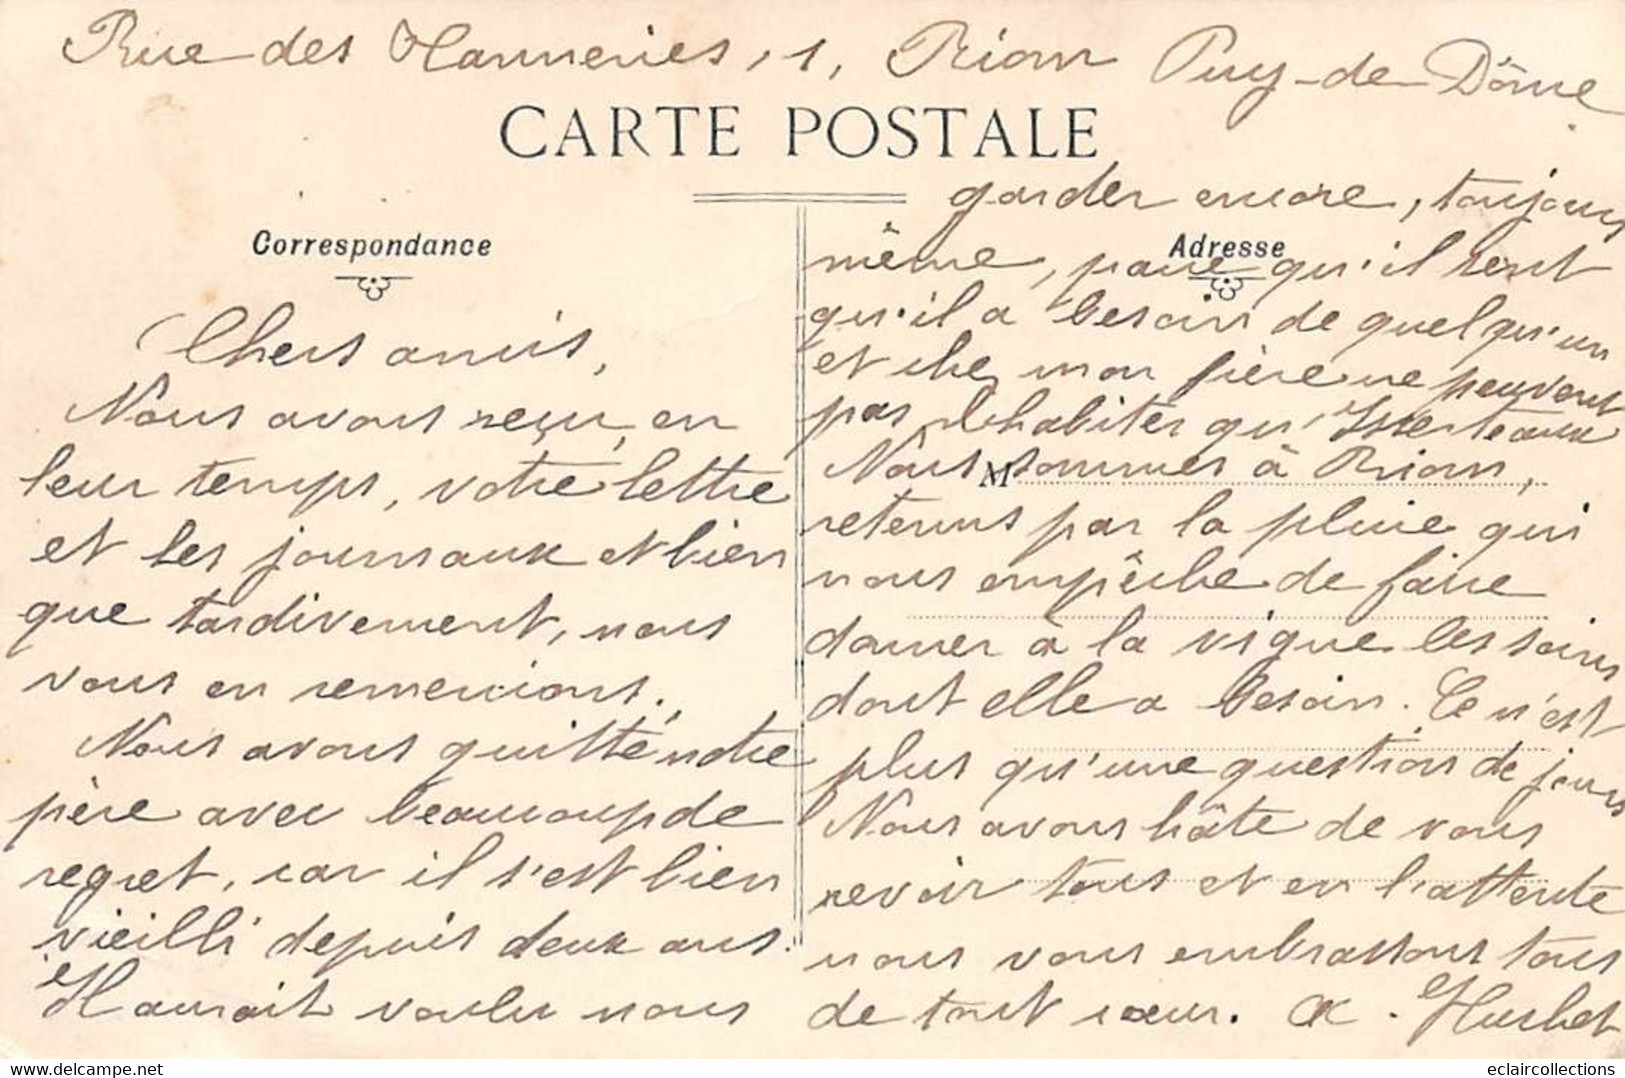 Rue des Tanneries, 1, Riom Puy-de-Dôme
CARTE POSTALE
Correspondance
Chers amis,
Nous avons reçu, en
leur temps, votre lettre
et les journaux et bien
que tardivement, nous
vous en remercions.
Nous avons quitté notre
père avec beaucoup de
regret, car il s'est bien
vieilli depuis deux ans.
Il aurait voulu nous
garder encore, toujours
Adresse
même, parce qu'il sent
qu'il a besoin de quelqu'un
et chez mon frère ne peuvent
pas habiter qu'Isserteaux
Nous sommes à Riom,
M
retenus par la pluie qui
nous empêche de faire
donner à la vigne les soins
dont elle a besoin. Ce n'est
plus qu'une question de jours
Nous avons hâte de vous
revoir tous et en l'attente
nous vous embrassons tous
de tout cœur.
eclaircollections